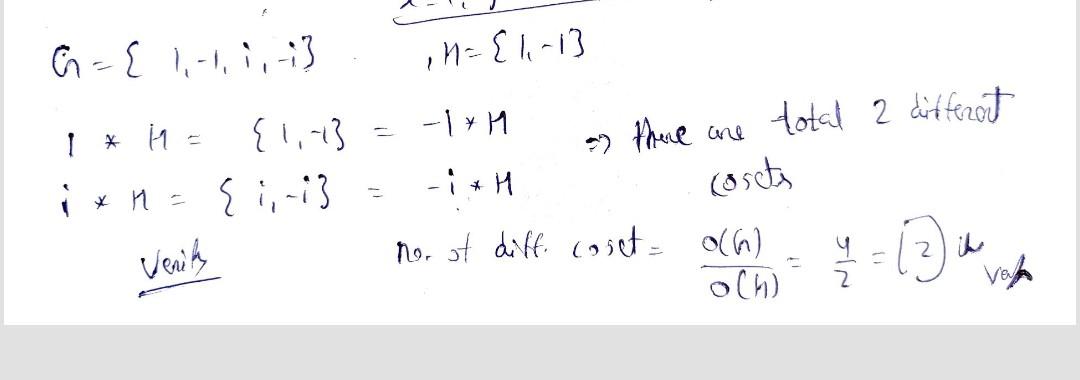 G = { 1, -1, i, -i} , H = {1, -1}
1 * H = {1, -1} = -1 * H => there are total 2 different
i * H = { i, -i} = -i * H cosets
Verify no. of diff. coset = o(G) / o(H) = 4 / 2 = 2